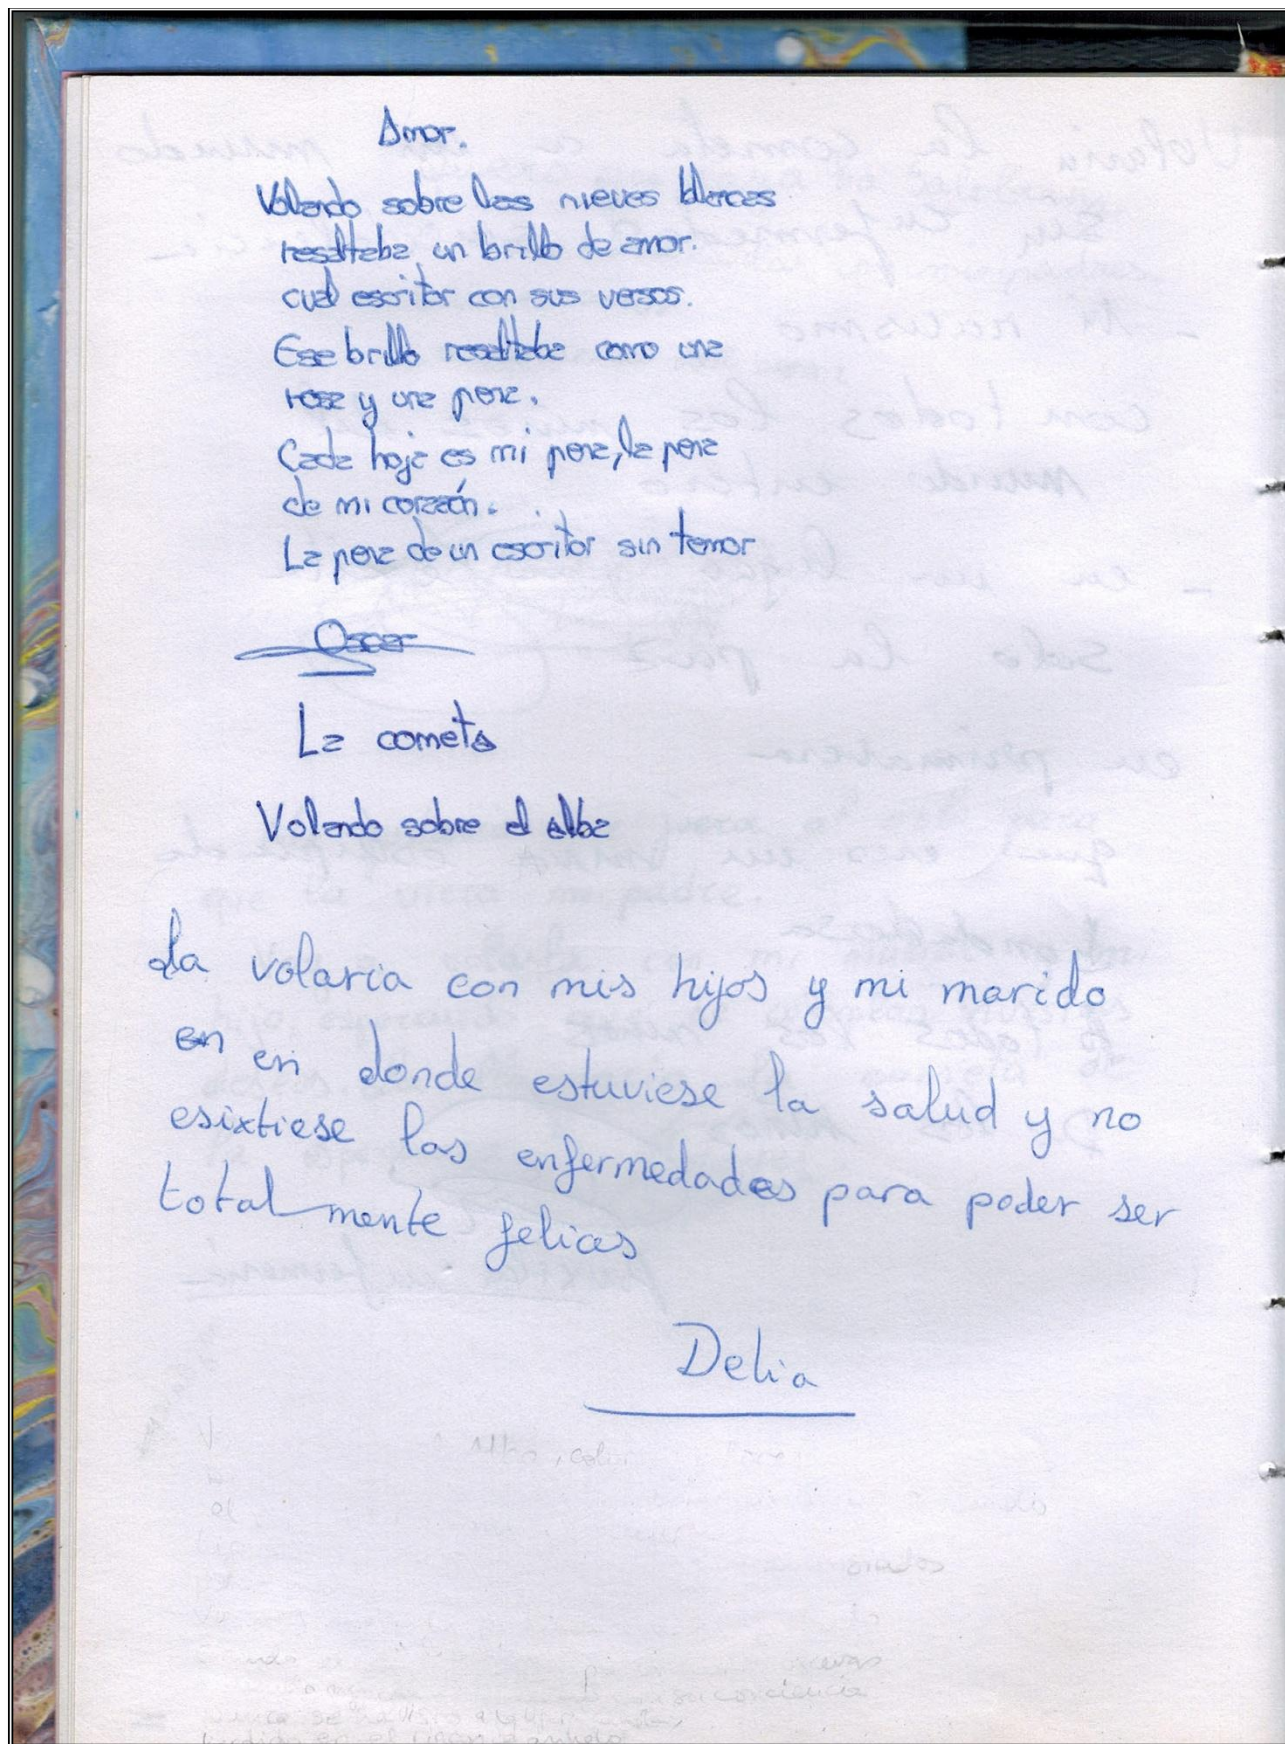 Amor.
Volando sobre las nieves blancas
resaltaba un brillo de amor.
cual escritor con sus versos.
Ese brillo resaltaba como una
rosa y una pena.
Cada hoja es mi pena, la pena
de mi corazón.
La pena de un escritor sin temor
Oscar
La cometa
Volando sobre el alba
La volaria con mis hijos y mi marido
en en donde estuviese la salud y no
esixtiese las enfermedades para poder ser
totalmente felices
Delia